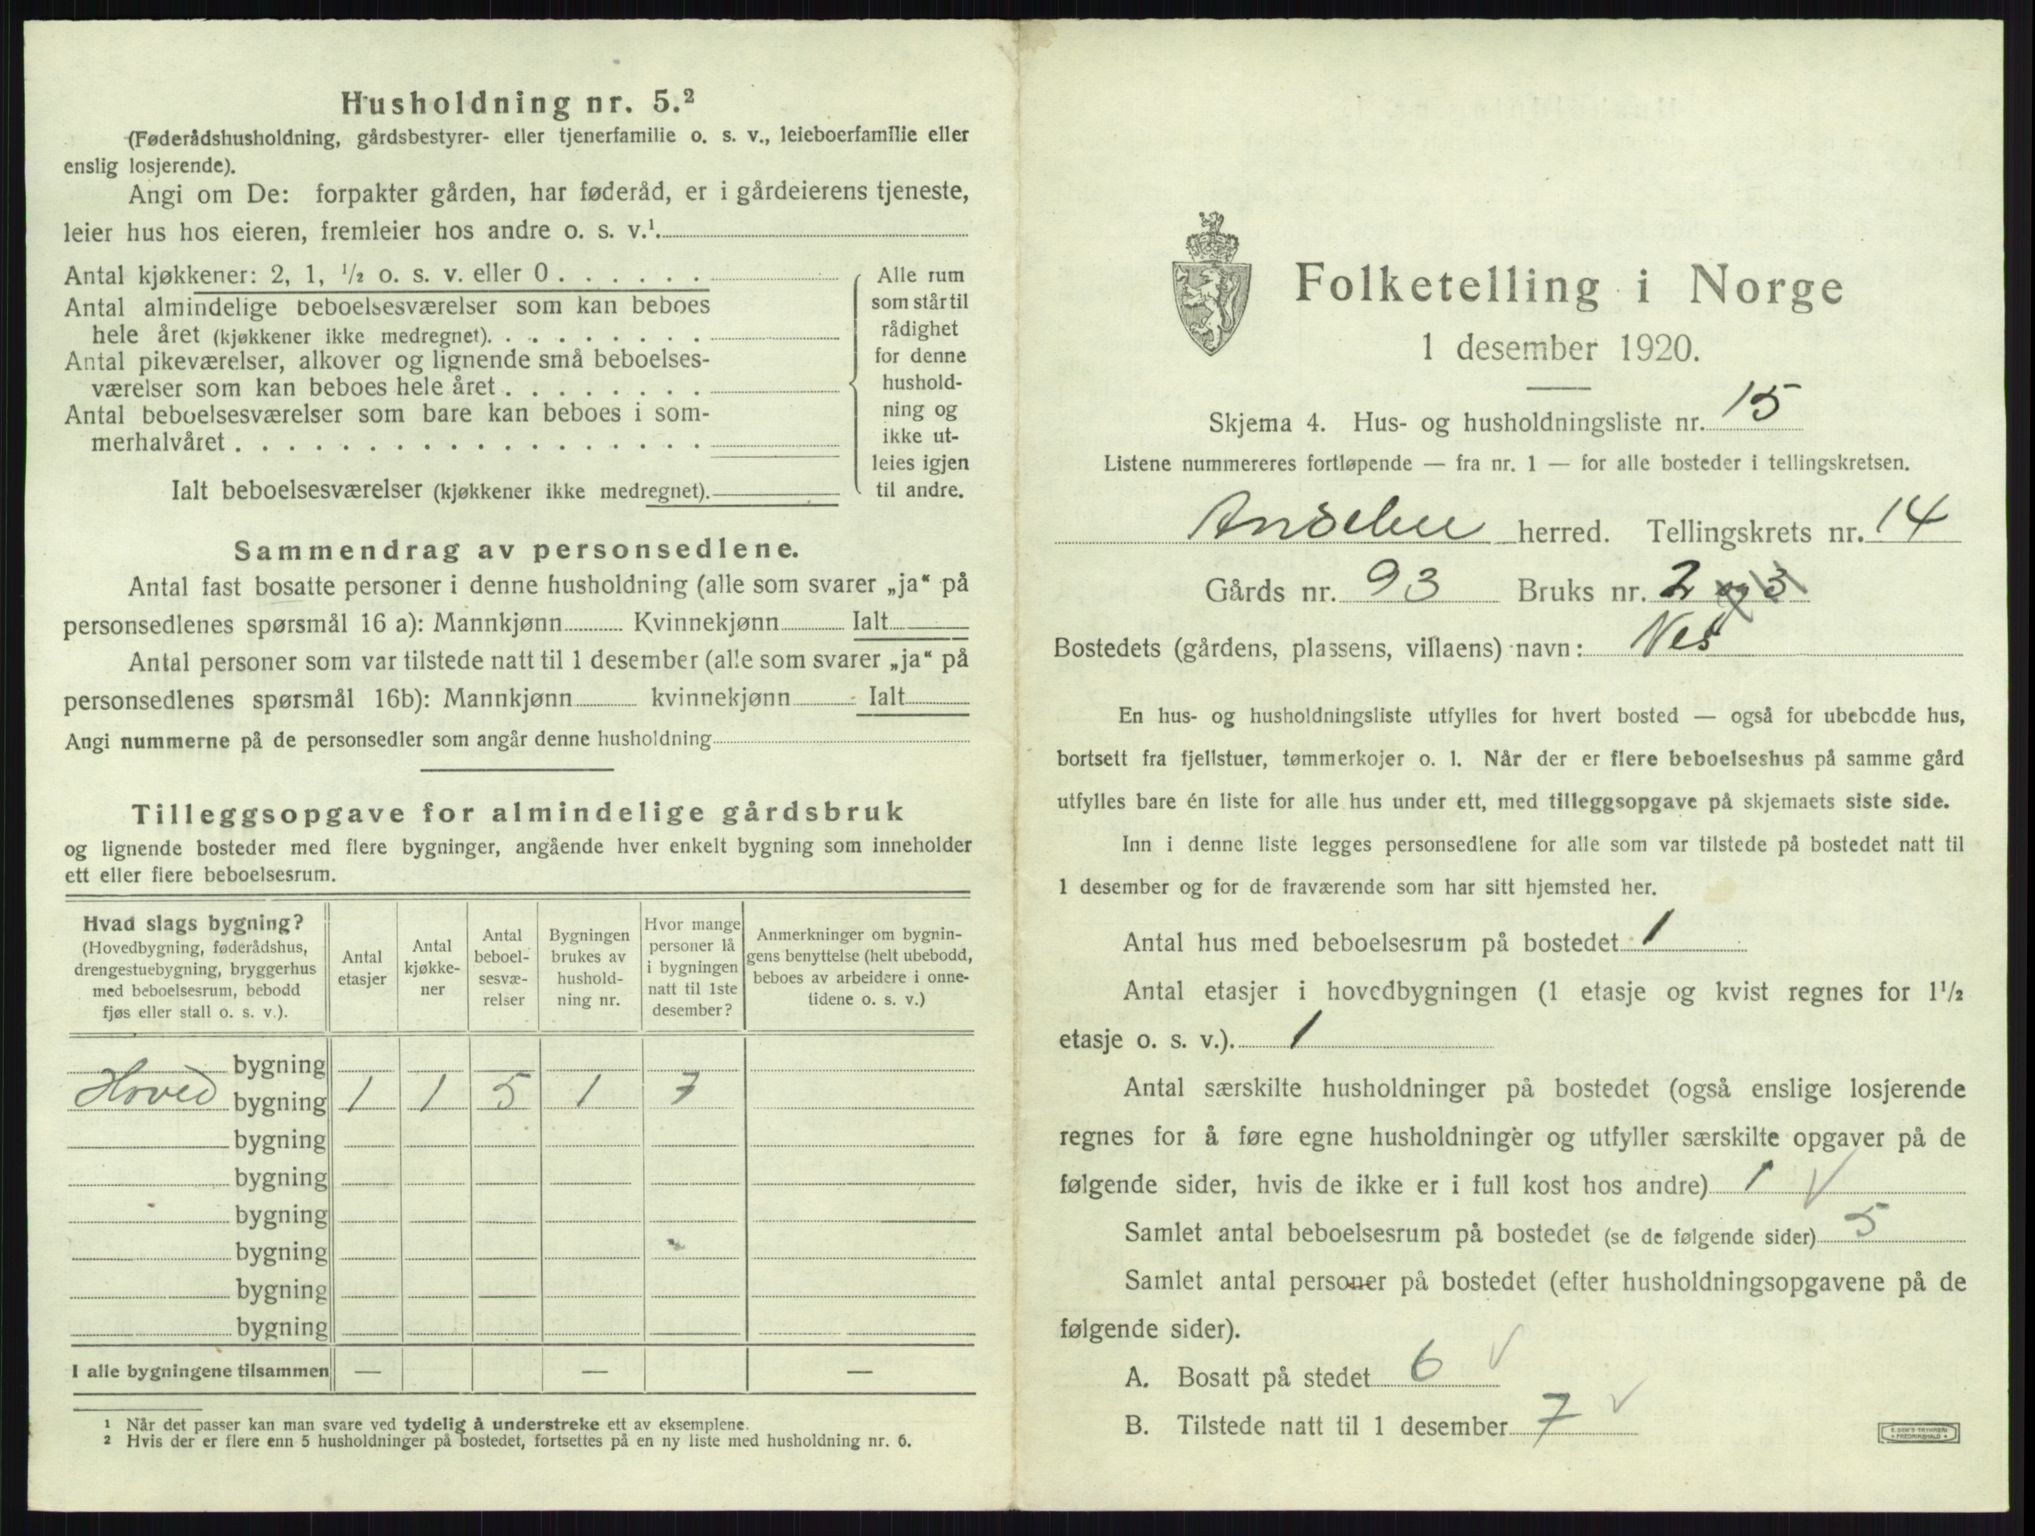 Husholdning nr. 5.²
(Føderådshusholdning, gårdsbestyrer- eller tjenerfamilie o. s. v., leieboerfamilie eller
enslig losjerende).
Angi om De: forpakter gården, har føderåd, er i gårdeierens tjeneste,
leier hus hos eieren, fremleier hos andre o. s. v.¹
Antal kjøkkener: 2, 1, ½ o. s. v. eller 0
Antal almindelige beboelsesværelser som kan beboes
hele året (kjøkkener ikke medregnet).
Antal pikeværelser, alkover og lignende små beboelses-
værelser som kan beboes hele året
Antal beboelsesværelser som bare kan beboes i som-
merhalvåret
Ialt beboelsesværelser (kjøkkener ikke medregnet).
Alle rum
som står til
rådighet
for denne
hushold-
ning og
ikke ut-
leies igjen
til andre.
Sammendrag av personsedlene.
Antal fast bosatte personer i denne husholdning (alle som svarer „ja“ på
personsedlenes spørsmål 16 a): Mannkjønn Kvinnekjønn Ialt
Antal personer som var tilstede natt til 1 desember (alle som svarer „ja“ på
personsedlenes spørsmål 16b): Mannkjønn kvinnekjønn Ialt
Angi nummerne på de personsedler som angår denne husholdning
Tilleggsopgave for almindelige gårdsbruk
og lignende bosteder med flere bygninger, angående hver enkelt bygning som inneholder
ett eller flere beboelsesrum.
Hvad slags bygning?
(Hovedbygning, føderådshus,
drengestuebygning, bryggerhus
med beboelsesrum, bebodd
fjøs eller stall o. s. v.).
Antal
etasjer
Antal
kjøkke-
ner
Antal
beboel-
sesvæ-
relser
Bygningen
brukes av
hushold-
ning nr.
Hvor mange
personer lå
i bygningen
natt til 1ste
desember?
Anmerkninger om bygnin-
gens benyttelse (helt ubebodd,
beboes av arbeidere i onne-
tidene o. s. v.)
bygning
Hoved bygning 1 1 5 1 7
bygning
bygning
bygning
bygning
bygning
bygning
I alle bygningene tilsammen — — —
¹ Når det passer kan man svare ved tydelig å understreke ett av eksemplene.
² Hvis der er flere enn 5 husholdninger på bostedet, fortsettes på en ny liste med husholdning nr. 6.
Folketelling i Norge
1 desember 1920.
Skjema 4. Hus- og husholdningsliste nr. 15
Listene nummereres fortløpende — fra nr. 1 — for alle bosteder i tellingskretsen.
Andebu herred. Tellingskrets nr. 14
Gårds nr. 93 Bruks nr. 2 og 3
Bostedets (gårdens, plassens, villaens) navn: Nes
En hus- og husholdningsliste utfylles for hvert bosted — også for ubebodde hus,
bortsett fra fjellstuer, tømmerkojer o. l. Når der er flere beboelseshus på samme gård
utfylles bare én liste for alle hus under ett, med tilleggsopgave på skjemaets siste side.
Inn i denne liste legges personsedlene for alle som var tilstede på bostedet natt til
1 desember og for de fraværende som har sitt hjemsted her.
Antal hus med beboelsesrum på bostedet 1
Antal etasjer i hovedbygningen (1 etasje og kvist regnes for 1½
etasje o. s. v.). 1
Antal særskilte husholdninger på bostedet (også enslige losjerende
regnes for å føre egne husholdninger og utfyller særskilte opgaver på de
følgende sider, hvis de ikke er i full kost hos andre) 1 √
Samlet antal beboelsesrum på bostedet (se de følgende sider) 5
Samlet antal personer på bostedet (efter husholdningsopgavene på de
følgende sider).
A. Bosatt på stedet 6 √
B. Tilstede natt til 1 desember 7 √